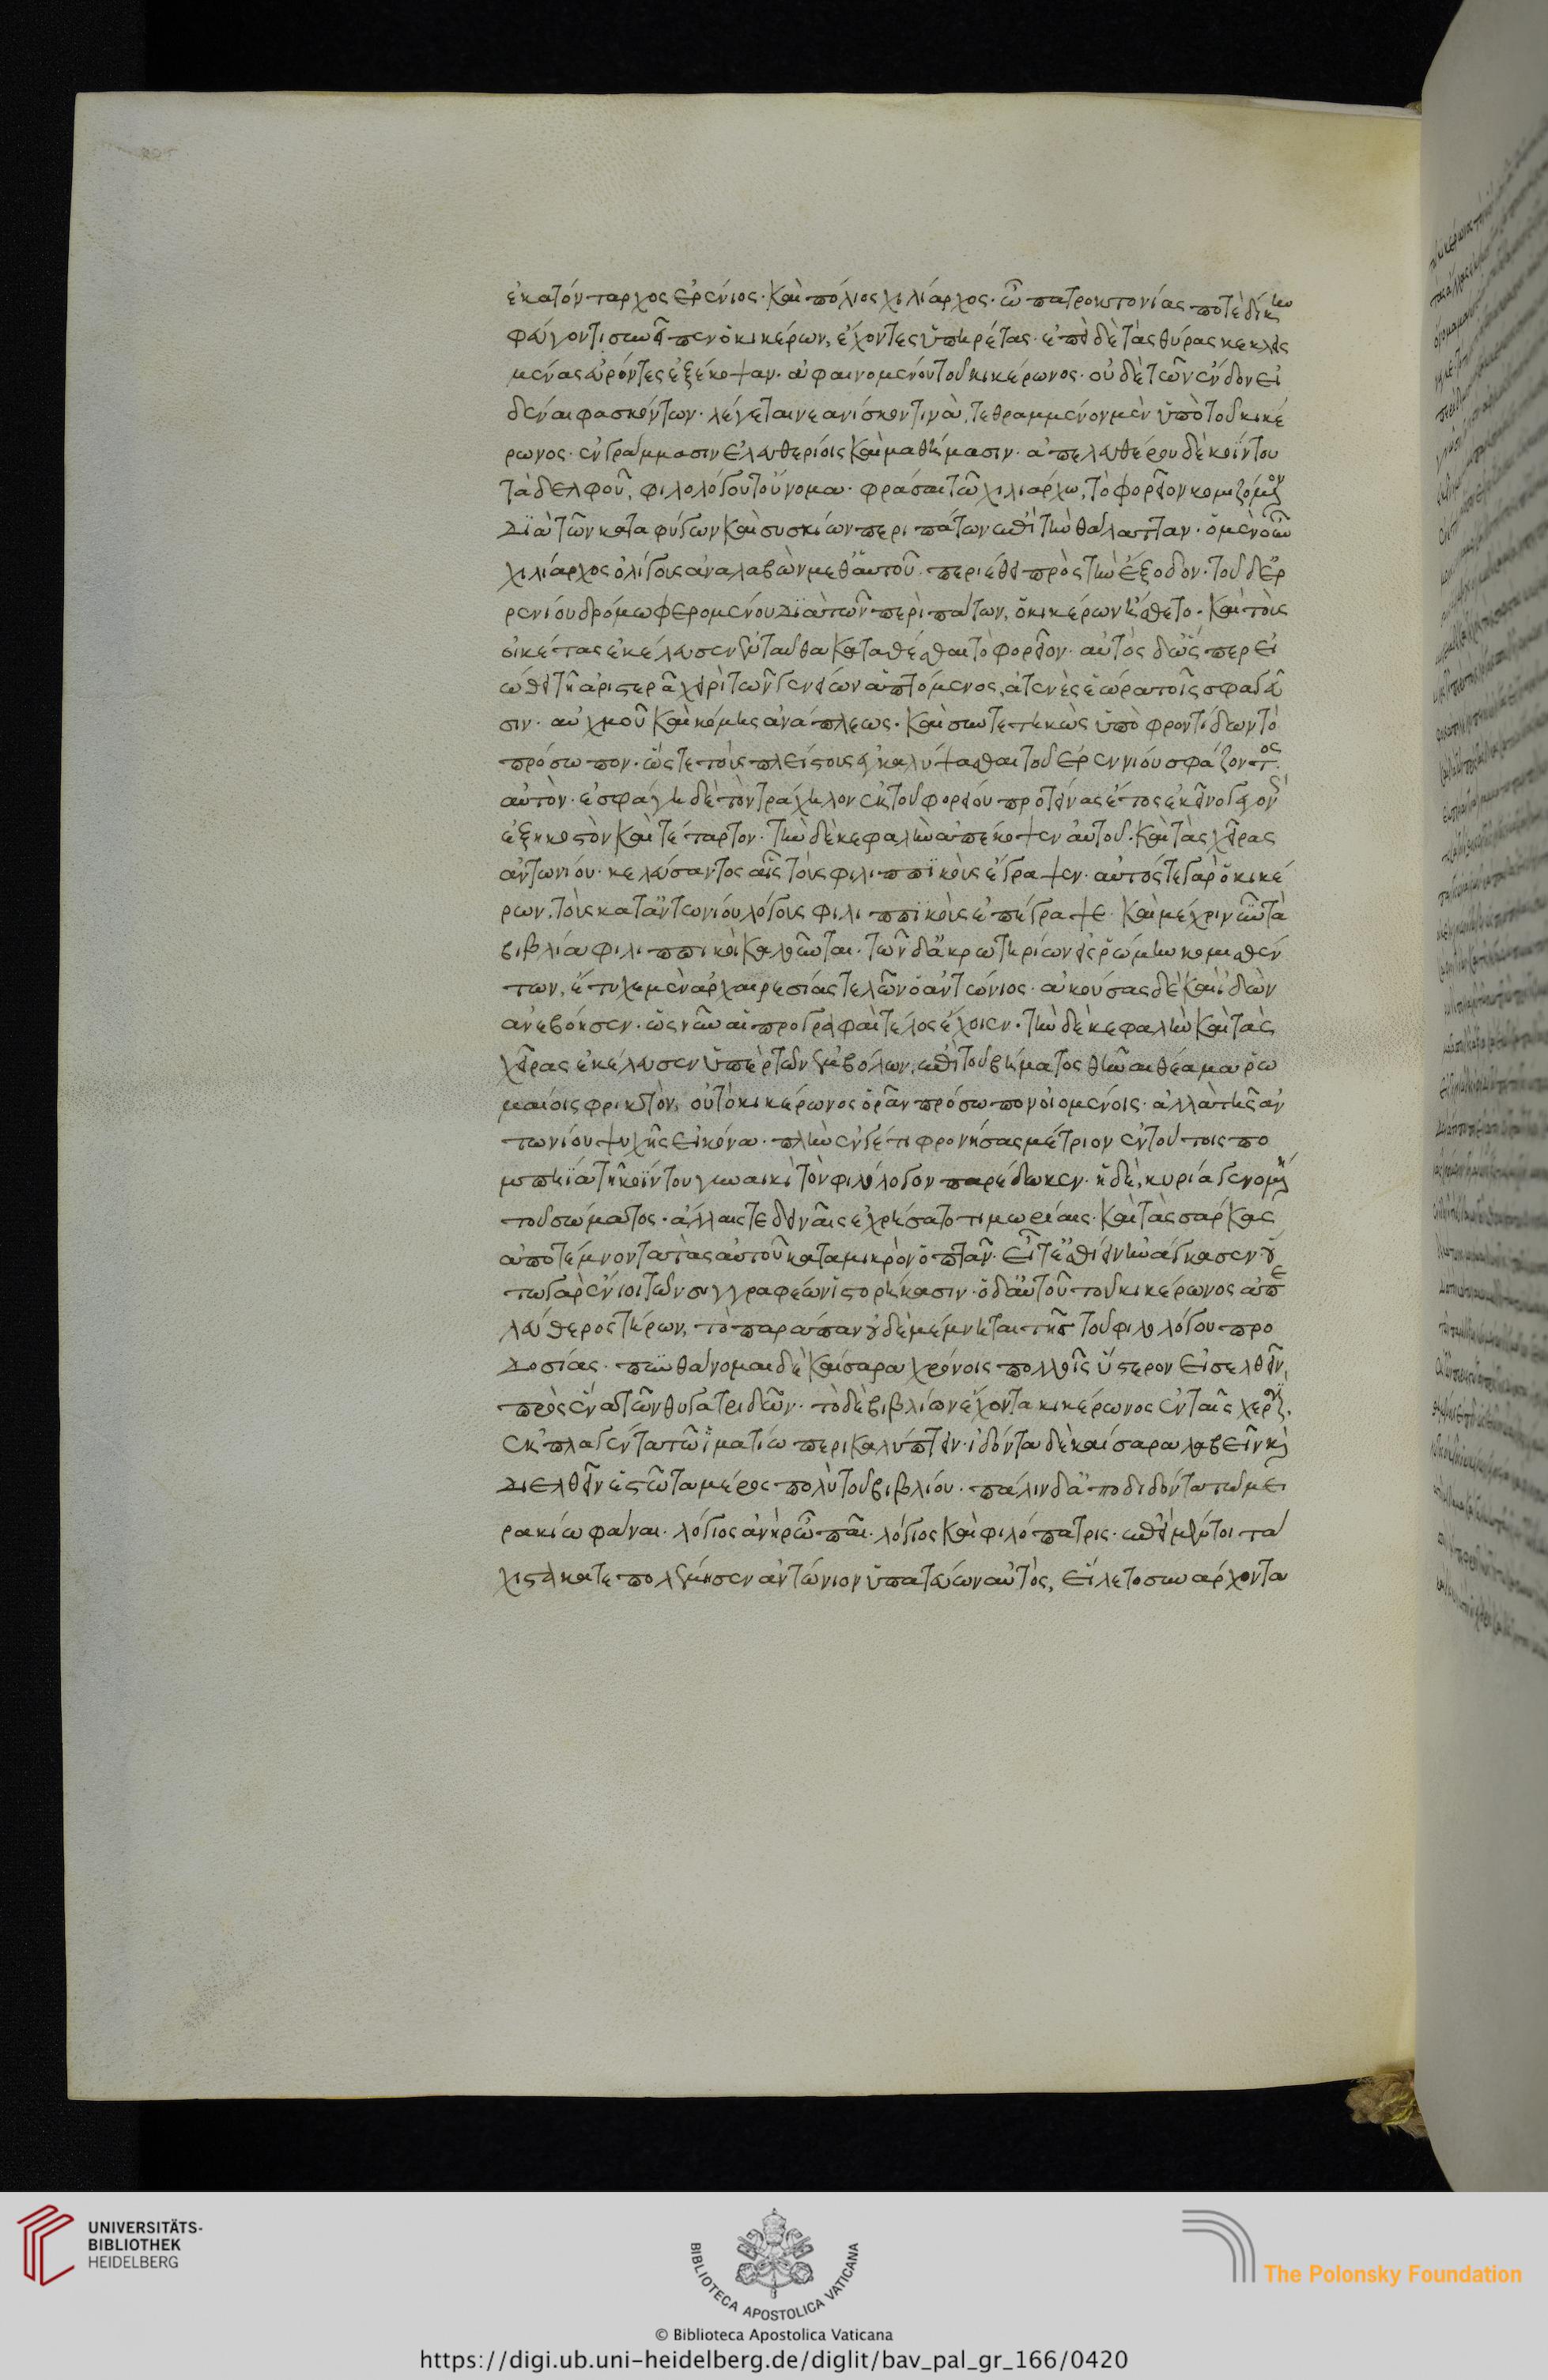 ἑκατόνταρχος ἑρένιος· καὶ πόλιος χιλίαρχος· ὧ πατροκτονίας ποτὲ δίκην
φεύγοντι συνεῖπεν ὁ κικέρων, ἔχοντες ὑπηρέτας· ἐπεὶ δὲ τὰς θύρας κεκλεισ
μένας εὑρόντες ἐξέκοψαν· ἀφαινομένου τοῦ κικέρωνος· οὐδὲ τῶν ἔνδον εἰ
δέναι φασκόντων· λέγεται νεανίσκον τινὰ, τεθραμμένον μὲν ὑπὸ τοῦ κικέ
ρωνος· ἐν γράμμασιν ἐλευθερίοις καὶ μαθήμασιν· ἀπελευθέρου δὲ κοίντου
τἀδελφοῦ, φιλολόγου τοὔνομα· φράσαι τῶ χιλιάρχω, τὸ φορεῖον κομιζόμενον
διὰ τῶν καταφύτων καὶ συσκίων περιπάτων ἐπὶ τὴν θάλατταν· ὁ μὲν οὖν
χιλίαρχος ὀλίγους ἀναλαβὼν μεθ' ἁυτοῦ· περιέθει πρὸς τὴν ἔξοδον· τοῦ δ' ἑρ
ρενίου δρόμω φερομένου διὰ τῶν περὶπάτων, ὁ κικέρων ἤσθετο· καὶ τοὺς
οἰκέτας ἐκέλευσεν ἐνταῦθα καταθέσθαι τὸ φορεῖον· αὐτὸς δ' ὥς περ εἰ
ώθει τῆ ἀριστερᾶ χειρὶ τῶν γενείων ἁπτόμενος, ἀτενὲς ἑώρα τοῖς σφαγεῦ
σιν· αὐχμοῦ καὶ κόμης ἀνάπλεως· καὶ συντετηκὼς ὑπὸ φροντίδων τὸ
πρόσωπον· ὥστε τοὺς πλείστους ἐγκαλύψασθαι τοῦ ἑρεννίου σφάζοντος
αὐτὸν· ἐσφάγη δὲ τὸν τράχηλον ἐκ τοῦ φορείου προτείνας ἔτος ἐκεῖνο γεγονὼς
ἑξηκοστὸν καὶ τέταρτον· τὴν δὲ κεφαλὴν ἀπέκοψεν αὐτοῦ· καὶ τὰς χεῖρας
ἀντωνίου· κελεύσαντος αἷς τοὺς φιλιππϊκοὺς ἔγραψεν· αὐτός τε γὰρ ὁ κικέ
ρων, τοὺς κατ' ἀντωνίου λόγους φιλιππϊκοὺς ἐπέγραψε· καὶ μέχρι νῦν τὰ
βιβλία φιλιππικοὶ καλοῦνται· τῶν δ' ἀκρωτηρίων εἰς ῥώμην κομισθέν
των, ἔτυχε μὲν ἀρχαιρεσίας τελῶν ὁ ἀντώνιος· ἀκούσας δὲ καὶ ἰδὼν
ἀνεβόησεν· ὡς νῦν αἱ προγραφαὶ τέλος ἔχοιεν· τὴν δὲ κεφαλὴν καὶ τὰς
χεῖρας ἐκέλευσεν ὑπὲρ τῶν ἐμβόλων, ἐπὶ τοῦ βήματος θεῖναι θέαμα ῥω
μαίοις φρικτὸν, οὐ τὸ κικέρωνος ὁρᾶν πρόσωπον οἰομένοις· ἀλλὰ τῆς ἀν
τωνίου ψυχῆς εἰκόνα· πλὴν ἕν γέ τι φρονήσας μέτριον ἐν τούτοις πο
μπηία τῆ κοΐντου γυναικὶ τὸν φιλόλογον παρέδωκεν· ἡ δὲ, κυρία γενομένη
τοῦ σώματος· ἄλλαις τε δειναῖς ἐχρήσατο τιμωρίαις· καὶ τὰς σάρκας
ἀποτέμνοντα τὰς αὑτοῦ κατα μικρὸν ὀπτᾶν· εἶτ' ἐσθίειν ἠνάγκασεν· οὕ
τω γὰρ ἔνιοι τῶν συγγραφέων ἱστορήκασιν· ὁ δ' αὐτοῦ τοῦ κικέρωνος ἀπε
λεύθερος τήρων, τὸ παράπαν οὐδὲ μέμνηται τῆς τοῦ φιλολόγου προ
δοσίας· πυνθάνομαι δὲ καίσαρα χρόνοις πολλοῖς ὕστερον εἰσελθεῖν,
πρὸς ἕνα τῶν θυγατριδῶν· τὸ δὲ βιβλίον ἔχοντα κικέρωνος ἐν ταῖς χερσὶν,
ἐκπλαγέντα τῶ ἱματίω περικαλύπτειν· ἰδόντα δὲ καίσαρα λαβεῖν καὶ
διελθεῖν ἑστῶτα μέρος πολὺ τοῦ βιβλίου· πάλιν δ' ἀποδιδόντα τῶ μει
ρακίω φάναι· λόγιος ἁνὴρ ὦ παῖ· λόγιος καὶ φιλόπατρις· ἐπεὶ μέντοι τά
χιστα κατεπολέμησεν ἀντώνιον ὑπατεύων αὐτὸς, εἵλετο συνάρχοντα